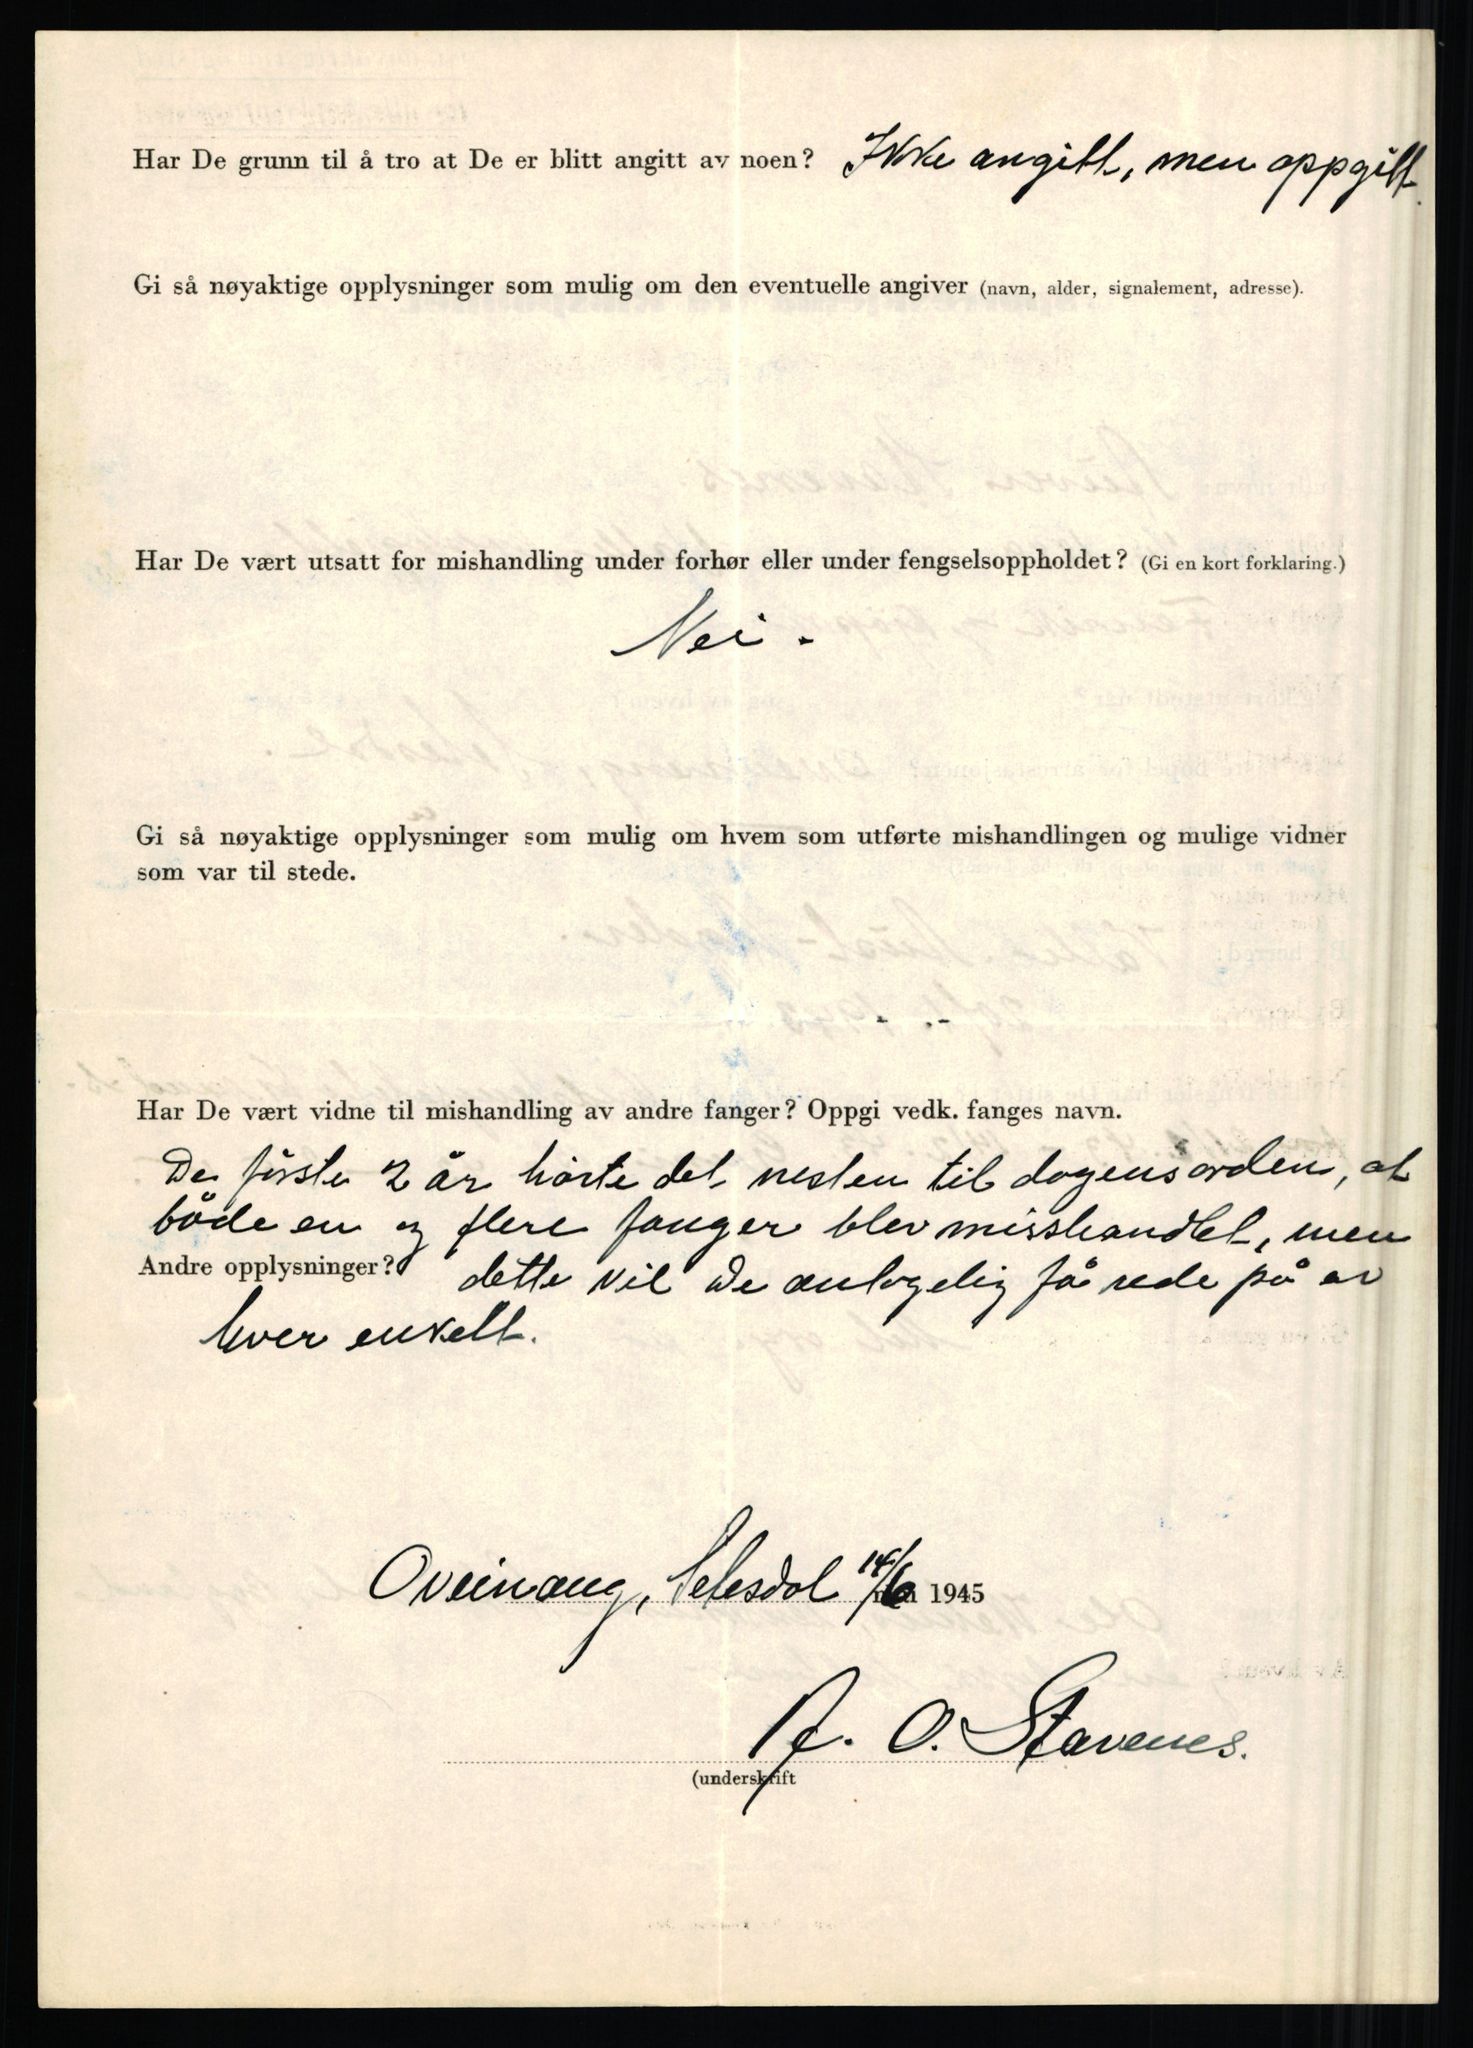 Har De grunn til å tro at De er blitt angitt av noen? Ikke angitt, men oppgitt.
Gi så nøyaktige opplysninger som mulig om den eventuelle angiver (navn, alder, signalement, adresse).
Har De vært utsatt for mishandling under forhør eller under fengselsoppholdet? (Gi en kort forklaring.)
Nei.
Gi så nøyaktige opplysninger som mulig om hvem som utførte mishandlingen og mulige vidner
som var til stede.
Har De vært vidne til mishandling av andre fanger? Oppgi vedk. fanges navn.
De første 2 år hørte det nesten til dagens orden, at
både en og flere fanger blev misshandlet, men
Andre opplysninger? dette vil De antagelig få rede på av
hver enkelt.
Oveinang, Setesdal 14/6 1945
O. Stavenes.
(underskrift